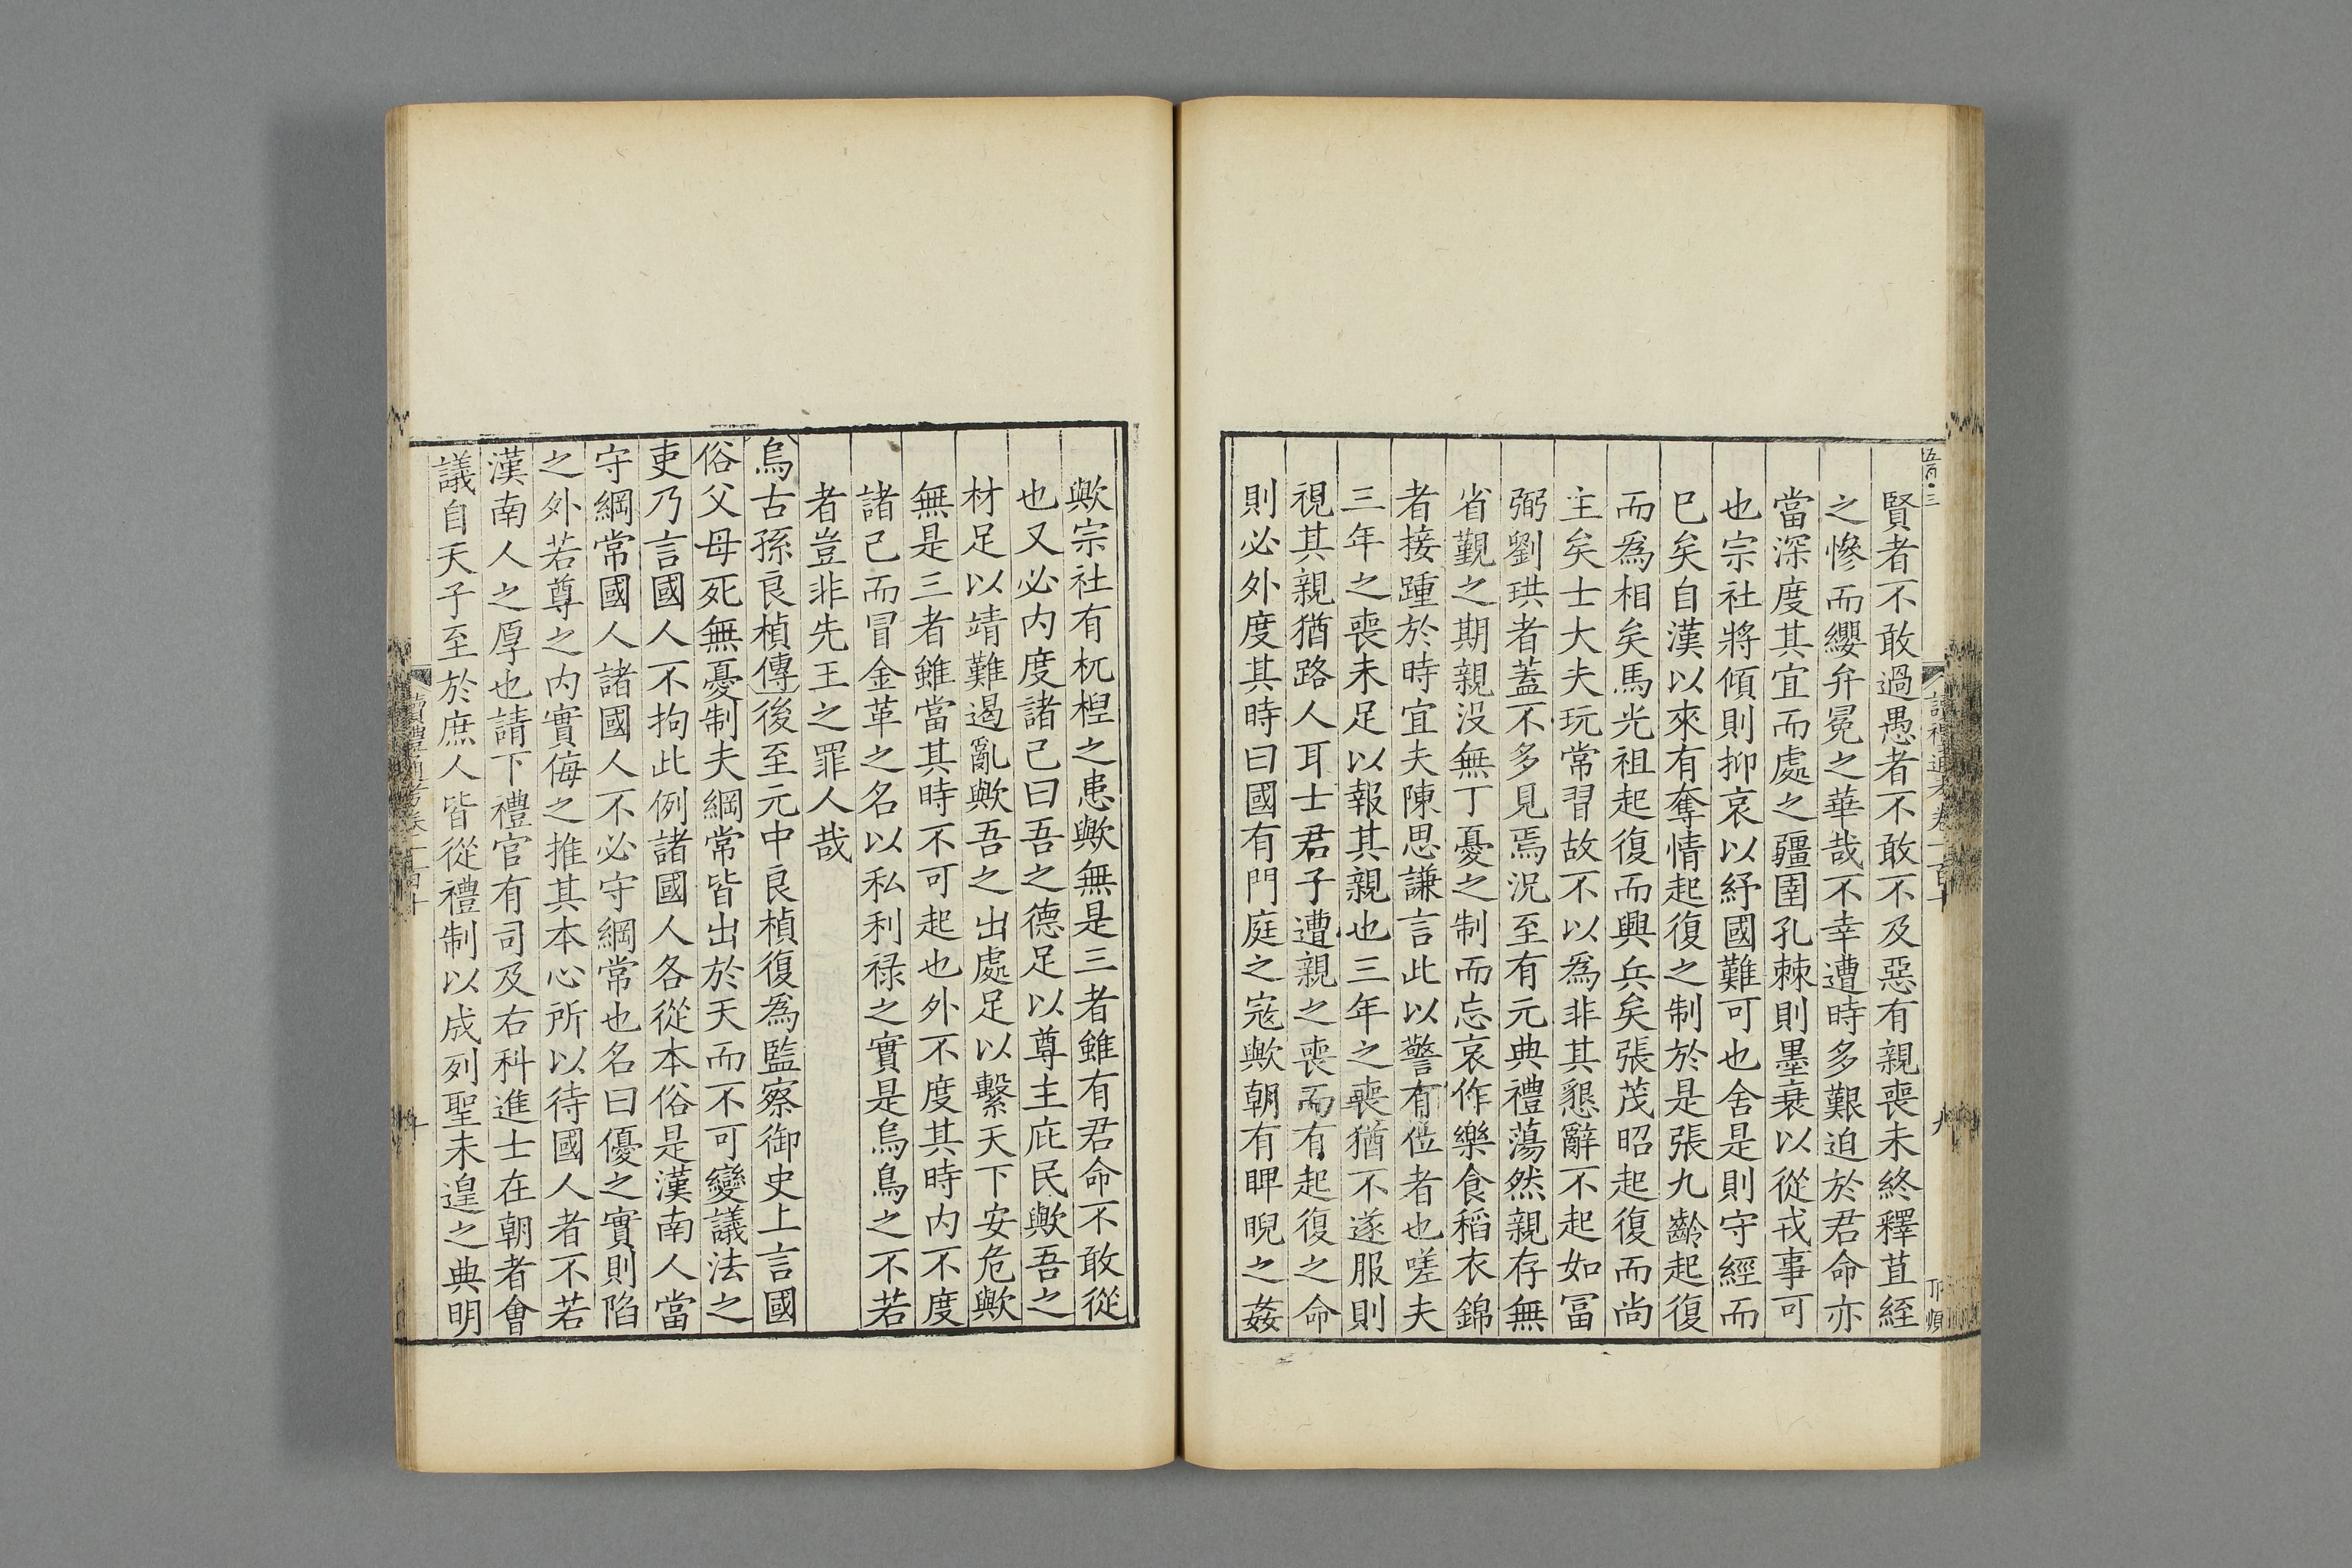 賢者不敢過愚者不敢不及惡有親喪未終釋苴絰
之慘而纓弁冕之華哉不幸遭時多艱迫於君命亦
當深度其宜而處之疆圉孔棘則墨衰以從戎事可
也宗社將傾則抑哀以紓國難可也舍是則守經而
已矣自漢以來有奪情起復之制於是張九齡起復
而為相矣馬光祖起復而興兵矣張茂昭起復而尚
主矣士大夫玩常習故不以為非其懇辭不起如冨
弼劉珙者蓋不多見焉況至有元典禮蕩然親存無
省覲之期親没無丁憂之制而忘哀作樂食稻衣錦
者接踵於時宜夫陳思謙言此以警有位者也嗟夫
三年之喪未足以報其親也三年之喪猶不遂服則
視其親猶路人耳士君子遭親之喪而有起復之命
則必外度其時曰國有門庭之寇歟朝有睥睨之姦
歟宗社有杌棿之患歟無是三者雖有君命不敢從
也又必内度諸己曰吾之德足以尊主庇民歟吾之
材足以靖難遏亂歟吾之出處足以繫天下安危歟
無是三者雖當其時不可起也外不度其時内不度
諸己而冒金革之名以私利禄之實是烏鳥之不若
者豈非先王之罪人哉
烏古孫良楨傳後至元中良楨復為監察御史上言國
俗父母死無憂制夫綱常皆出於天而不可變議法之
吏乃言國人不拘此例諸國人各從本俗是漢南人當
守綱常國人諸國人不必守綱常也名曰優之實則陷
之外若尊之内實侮之推其本心所以待國人者不若
漢南人之厚也請下禮官有司及右科進士在朝者會
議自天子至於庶人皆從禮制以成列聖未遑之典明